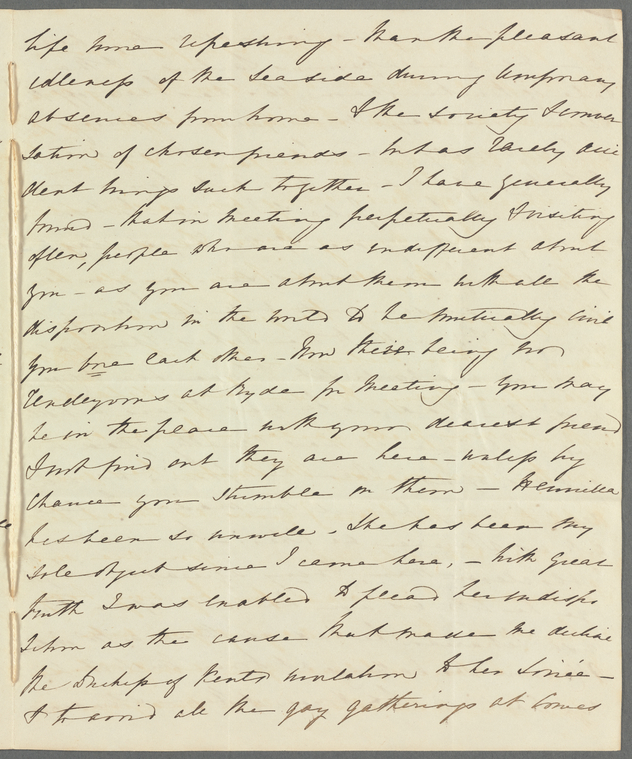 life more refreshing - than the pleasant
idleness of the Sea side during temporary
absences from home - & the society & conver
sation of chosen friends - but as rarely acci
dent brings such together - I have generally
found - that in meeting perpetually & visiting
often, people who are as indifferent about
you - as you are about them with all the
disposition in the world to be mutually civil
you bore each other - Now there being no
Rendezvous at Ryde for meeting - you may
be in the place with your dearest friend
& not find out they are here - unless by
chance you stumble on them -
has been so unwell, She has been my
sole object since I came here, - with great
truth I was enabled to plead her indispo
sition as the cause that made me decline
the Duchess of Kents invitation to her Soirée -
& to avoid all the gay gatherings at Cowes